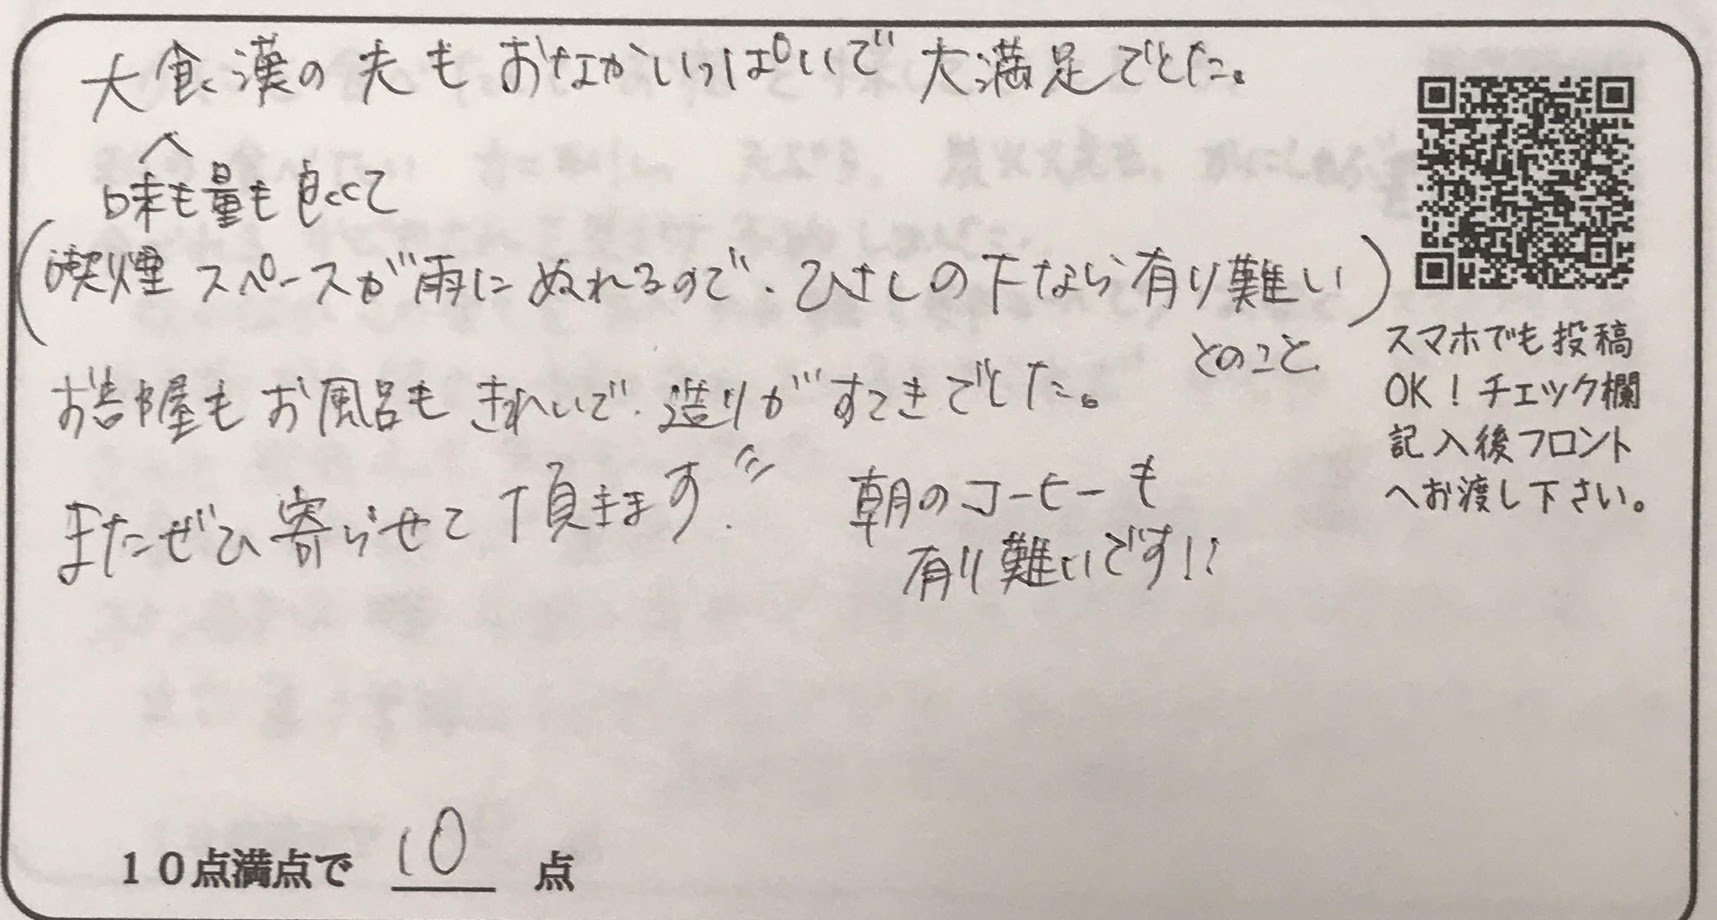 大食漢の夫もおなかいっぱいで大満足でした。
味も量も良くて
(喫煙スペースが雨にぬれるので、ひさしの下なら有り難い)
とのこと
お部屋もお風呂もきれいで、造りがすてきでした。
またぜひ寄らせて頂きます
朝のコーヒーも
有り難いです!!
スマホでも投稿
OK!チェック欄
記入後フロント
へお渡し下さい。
10点満点で 10 点